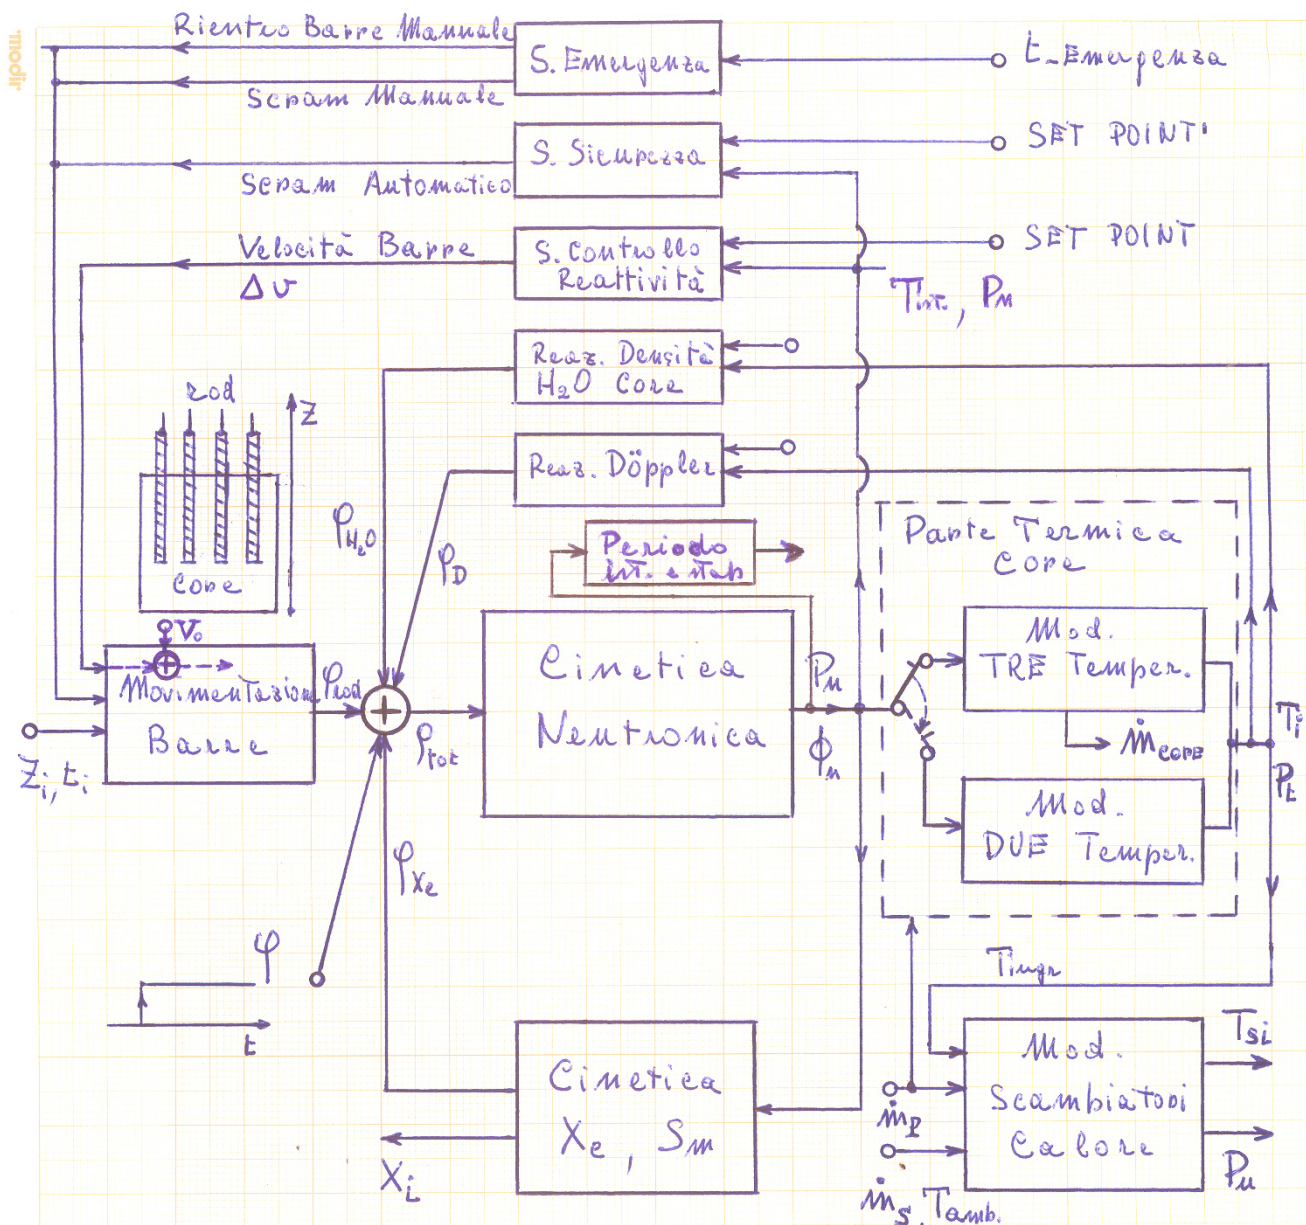 modir
Rientro Barre Manuale
S. Emergenza
t_Emergenza
Scram Manuale
SET POINT
S. Sicurezza
Scram Automatico
Velocità Barre
Δv
S. Controllo
Reattività
SET POINT
Tint., Pn
Reaz. Densità
H₂O Core
rod
Z
Core
Reaz. Döppler
ρH₂O
ρD
Periodo
ist. e stab
Parte Termica
Core
V₀
Movimentazione
Barre
Zi, ti
ρrod
+
+
ρtot
Cinetica
Neutronica
Pn
ϕn
Mod.
TRE Temper.
ṁcore
Mod.
DUE Temper.
Ti
Pt
ρXe
φ
t
Cinetica
Xe, Sm
Xi
Tingr
Mod.
Scambiatori
Calore
Tsi
Pu
ṁp
ṁs, Tamb.